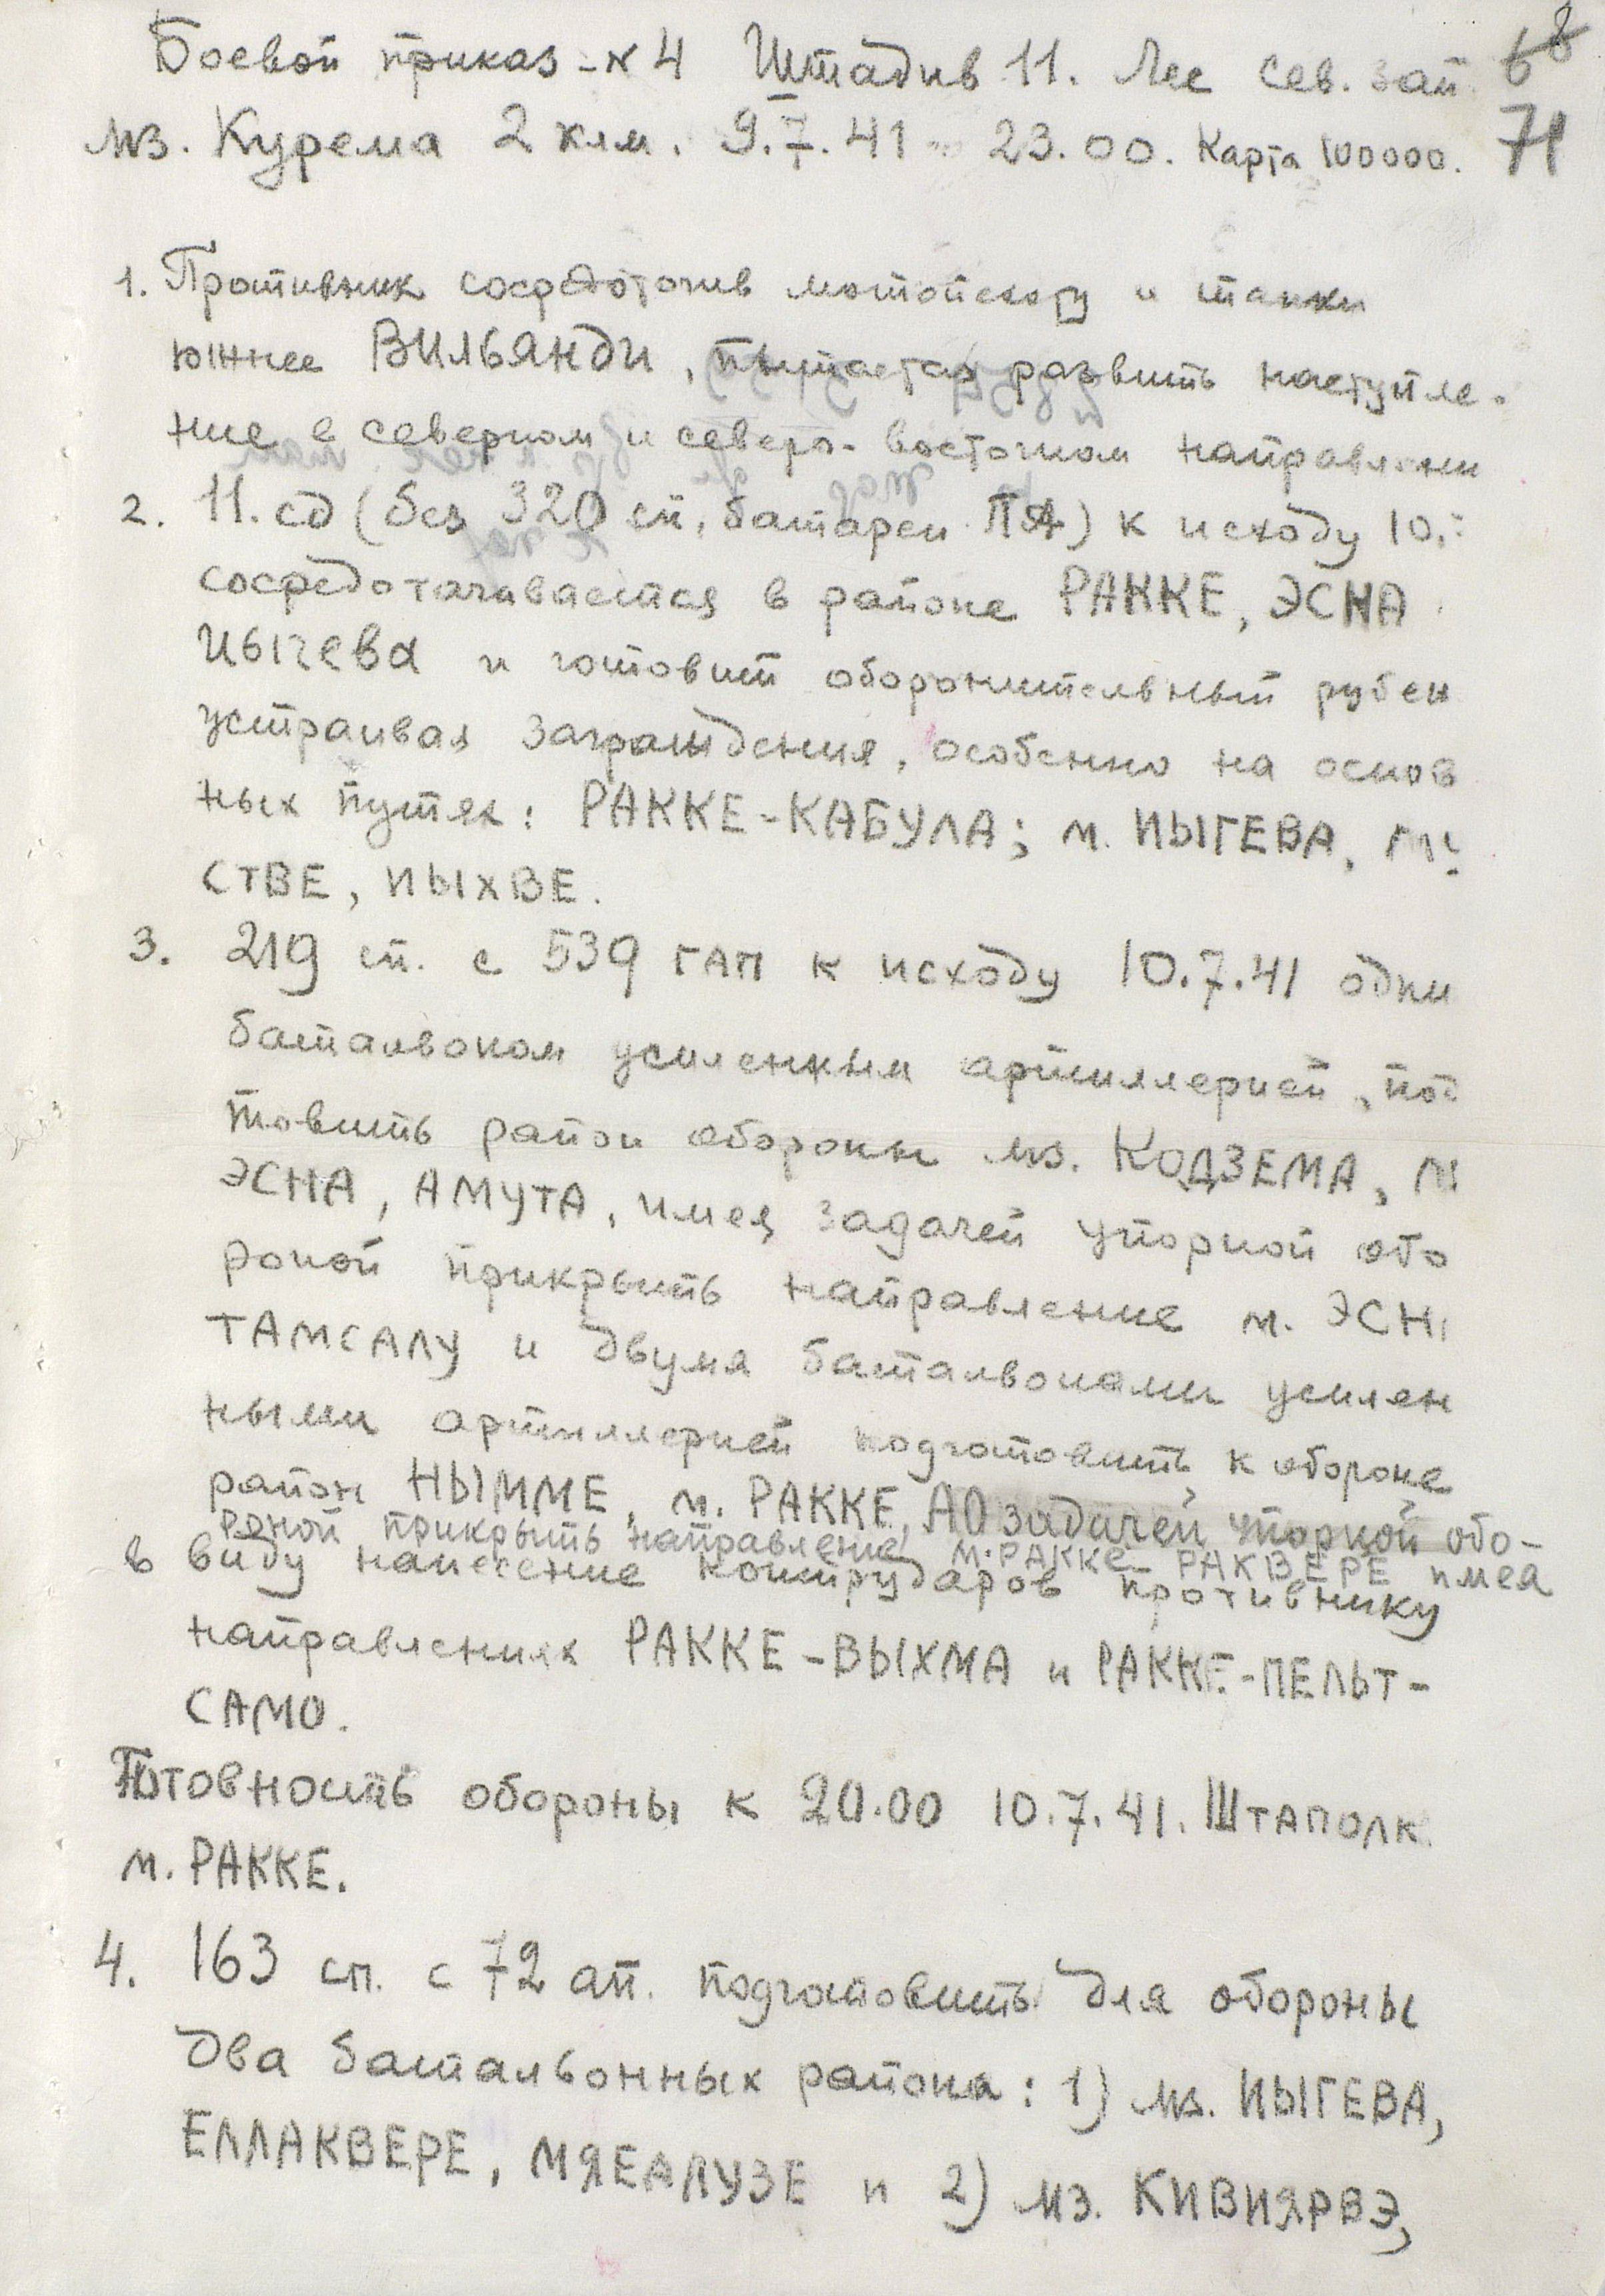 Боевой приказ - N 4 Штадив 11. Лес сев. зап 68
мз. Курема 2 клм. 9.7.41 23.00. Карта 100000. 71
1. Противник сосредоточив мотопехоту и танки
южнее ВИЛЬЯНДИ, пытается развить наступле-
ние в северном и северо-восточном направлени
2. 11. сд (без 320 сп, батареи ПА) к исходу 10.
сосредотачивается в районе РАККЕ, ЭСНА
ИЫГЕВА и готовит оборонительный рубеж
устраивая заграждения, особенно на основ
ных путях: РАККЕ-КАБУЛА; м. ИЫГЕВА,
СТВЕ, ИЫХВЕ.
3. 219 сп. с 539 ГАП к исходу 10.7.41 одни
батальоном усиленным артиллерией, под
товить район обороны мз. КОДЗЕМА, М
ЭСНА, АМУТА, имея задачей упорной обо
роной прикрыть направление м. ЭСН
ТАМСАЛУ и двумя батальонами усилен
ными артиллерией подготовить к обороне
район НЫММЕ, м. РАККЕ, АО задачей упорной обо-
роной прикрыть направление м. РАККЕ - РАКВЕРЕ имея
в виду нанесение контрударов противнику
направлениях РАККЕ-ВЫХМА и РАККЕ-ПЕЛЬТ-
САМО.
Готовность обороны к 20.00 10.7.41. Штаполк
м. РАККЕ.
4. 163 сп. с 72 ап. подготовить для обороны
два батальонных района: 1) мз. ИЫГЕВА,
ЕЛЛАКВЕРЕ, МЯЕАЛУЗЕ и 2) мз. КИВИЯРВЭ,